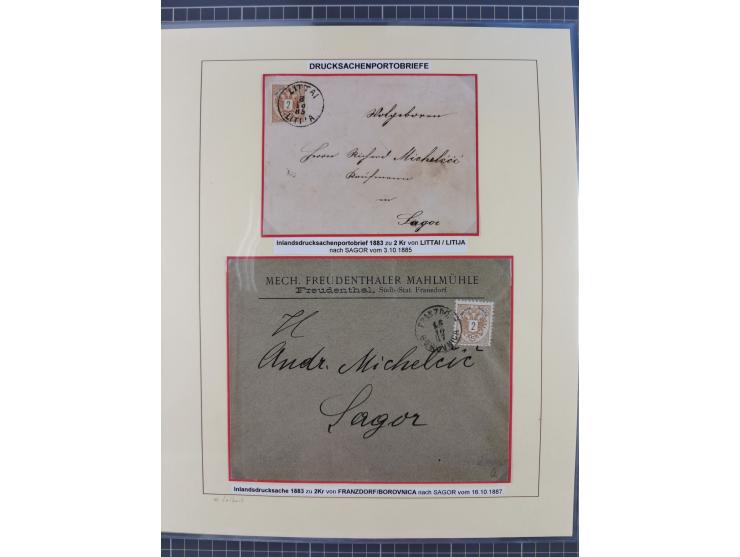 DRUCKSACHENPORTOBRIEFE
2
LITTAI
LITIJA
Wolgeboren
Herrn Richard Michelčić
Kaufmann
in
Sagor
Inlandsdrucksachenportobrief 1883 zu 2 Kr von LITTAI / LITIJA
nach SAGOR vom 3.10.1885
MECH. FREUDENTHALER MAHLMÜHLE
Freudenthal, Südb.-Stat. Fransdorf
2
Andr. Michelčić
Sagor
Inlandsdrucksache 1883 zu 2Kr von FRANZDORF/BOROVNICA nach SAGOR vom 16.10.1887